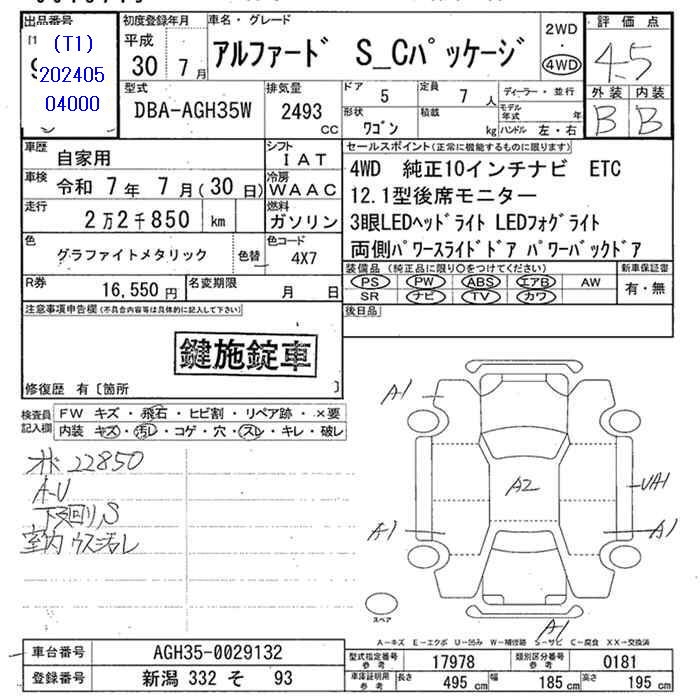 出品番号 初度登録年月 車名・グレード 2WD ・ 4WD 評価点
(T1)
202405
04000
平成
30年 7月
アルファード S_Cパッケージ
4.5
型式 排気量 ドア 5 定員 7人 ディーラー・並行 外装 内装
DBA-AGH35W 2493 cc
形状 ワゴン 積載 kg モデル年式 年 ハンドル 左・右
B B
車歴 自家用 シフト IAT
セールスポイント(正常に機能するものに限ります)
車検 令和 7年 7月(30日) 冷房 WAAC
4WD 純正10インチナビ ETC
12.1型後席モニター
走行 2万2千850 km 燃料 ガソリン
3眼LEDヘッドライト LEDフォグライト
両側パワースライドドア パワーバックドア
色 グラファイトメタリック 色替 色コード 4X7
装備品(純正品に限り○をつけてください) 新車保証書
PS PW ABS エアB AW 有・無
SR ナビ TV カワ
R券 16,550円 名変期限 月 日
後日品
注意事項申告欄(不具合内容等は具体的に記入して下さい)
鍵施錠車
修復歴 有〔箇所 〕
検査員記入欄
FW キズ・飛石・ヒビ割・リペア跡・×要
内装 キズ・汚レ・コゲ・穴・スレ・キレ・破レ
オド 22850
A-U
下廻り,S
室内 ウス汚レ
A1
A2
UA1
A1
A1
A1
スペア
A-キズ E-エクボ U-凹み W-補修跡 S-サビ C-腐食 XX-交換済
車台番号 AGH35-0029132
型式指定番号 参考 17978 類別区分番号 参考 0181
登録番号 新潟 332 そ 93
車庫証明用 参考 長さ 495 cm 幅 185 cm 高さ 195 cm